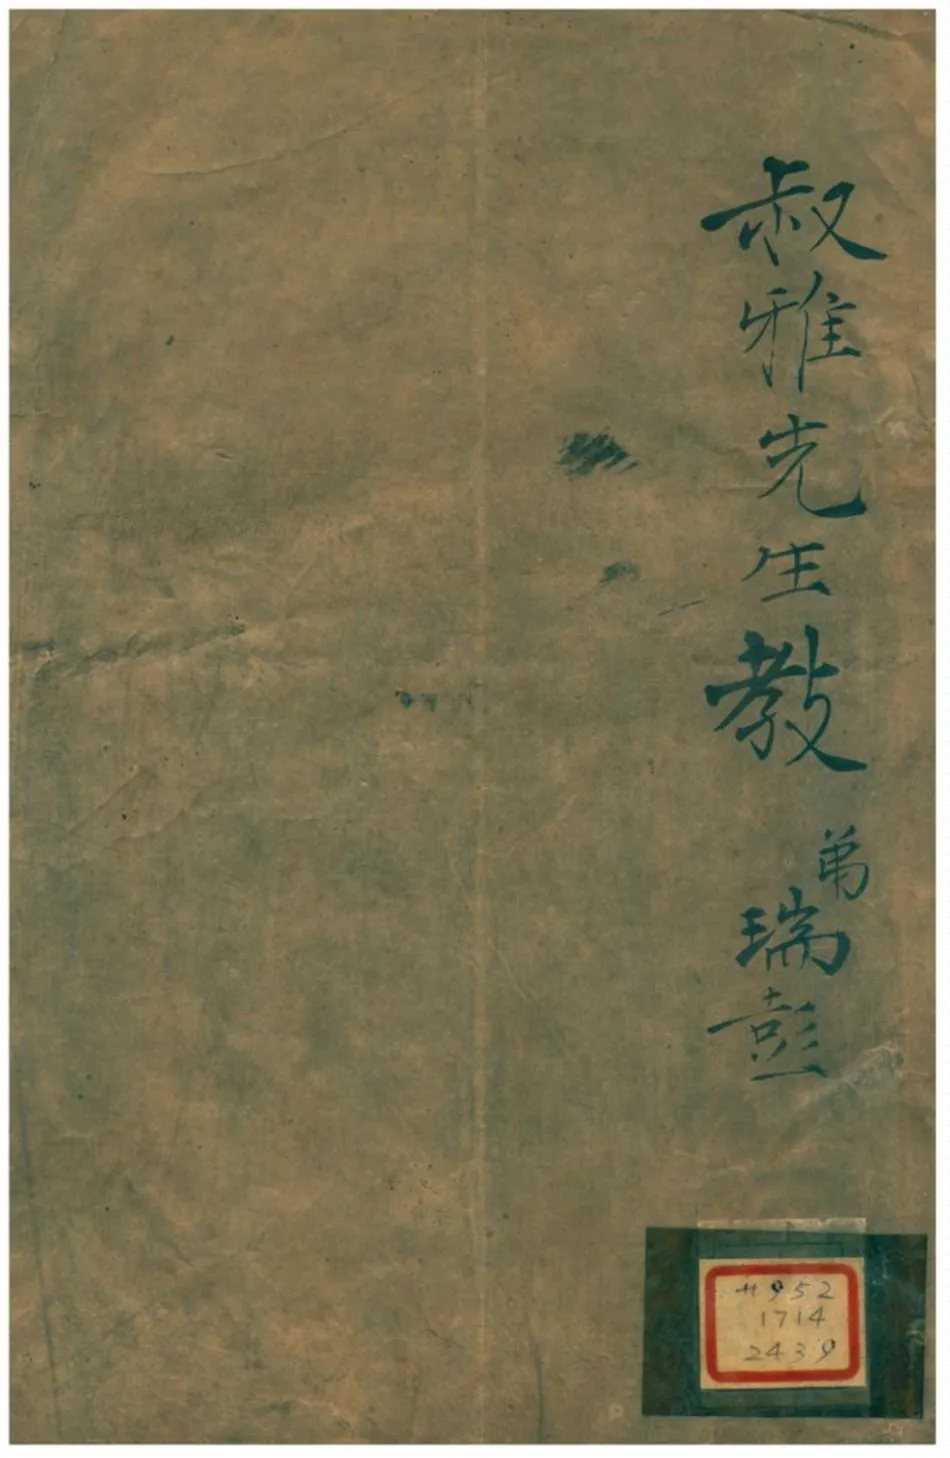 叔雅先生教
弟瑞彭
H952
1714
2439